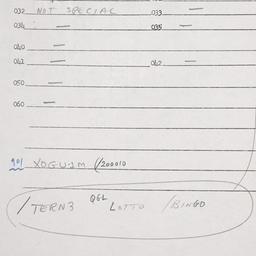 032 NOT SPECIAL 033 —
034 — 035 —
040 —
041 — 042 —
050 —
060 —
901 XOGUJM (/200010
/TERN3 QGL LOTTO /BINGO